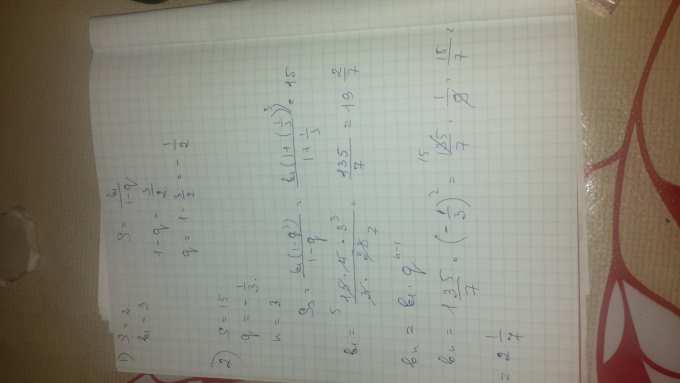 1) S = 2 S = b₁/(1-q)
b₁ = 3 1-q = 3/2
q = 1 - 3/2 = -1/2
2) S = 15
q = -1/3.
n = 3
S₃ = b₁(1-q³)/(1-q) = b₁(1+(1/3)³)/(1+1/3) = 15
b₁ = 135/7 = 19 2/7
bₙ = b₁ · qⁿ⁻¹
bₙ = 135/7 · (-1/3)² = 135/7 · 1/9 = 15/7 =
= 2 1/7